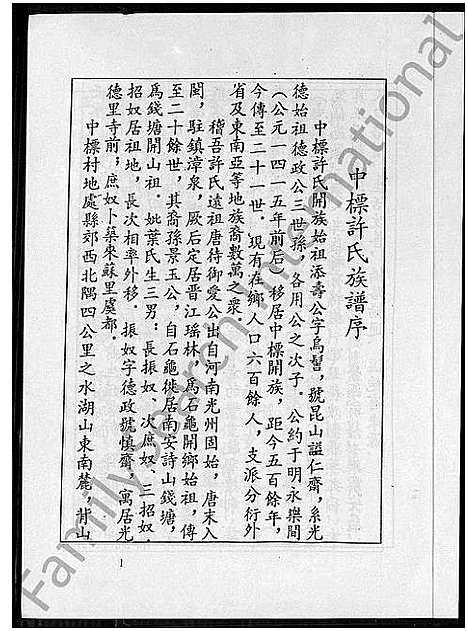 中標許氏族譜序
中標許氏開族始祖添壽公字烏髻，號昆山謚仁齋，系光
德始祖德政公三世孫，各用公之次子。公約于明永樂間
（公元一四一五年前后）移居中標開族，距今五百餘年，
今傳至二十一世。現有在鄉人口六百餘人，支派分衍外
省及東南亞等地族裔數萬之衆。
稽吾許氏遠祖唐待御愛公出自河南光州固始，唐末入
閩，駐鎮漳泉，厥后定居晋江瑶林，爲石龜開鄉始祖，傳
至二十餘世，其裔孫景玉公，自石龜徙居南安詩山錢塘，
爲錢塘開山祖。妣葉氏生三男：長振奴、次庶奴、三招奴，
招奴居祖地，長次相率外移。振奴字德政號慎齋，寓居光
德里寺前；庶奴卜築來蘇里虞都。
中標村地處縣郊西北隅四公里之水湖山東南麓，背山
1
FamilySearch International